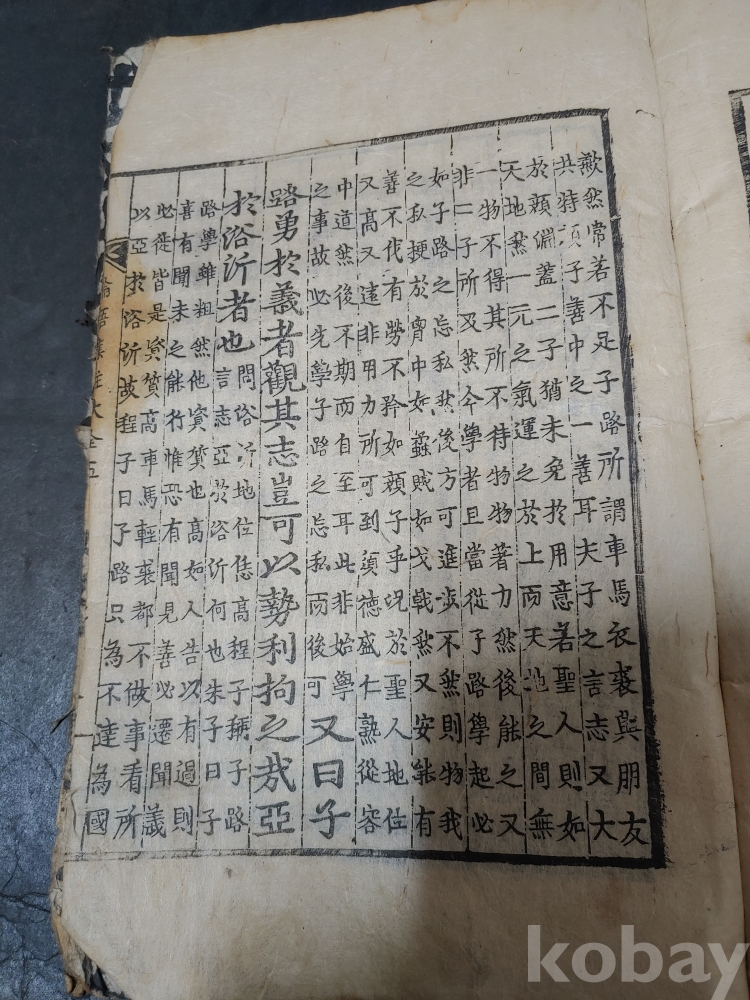 歉然常若不足子路所謂車馬衣裘與朋友
共特項子善中之一善耳夫子之言志又大
於顔淵蓋二子猶未免於用意若聖人則如
天地然一元之氣運之於上而天地之間無
一物不得其所不待物物著力然後能之又
非二子所及然今學者且當從子路學起必
如子路之忘私然後方可進步不然則物我
之私梗於胷中如蟊賊如戈戟然又安能有
善不伐有勞不矜如顔子乎况於聖人地位
又高又遠非用力所可到須德盛仁熟從容
中道然後不期而自至耳此非始學
之事故必先學子路之忘私而後可
又曰子
路勇於義者觀其志豈可以勢利拘之哉亞
於浴沂者也
問浴沂地位恁高程子稱子路
言志亞於浴沂何也朱子曰子
路學雖粗然他資質也高如人告以有過則
喜有聞未之能行惟恐有聞見善必遷聞義
必徙皆是資質高車馬輕裘都不做事看所
以亞於浴沂故程子曰子路只為不達為國
論語集註大全五
kobay